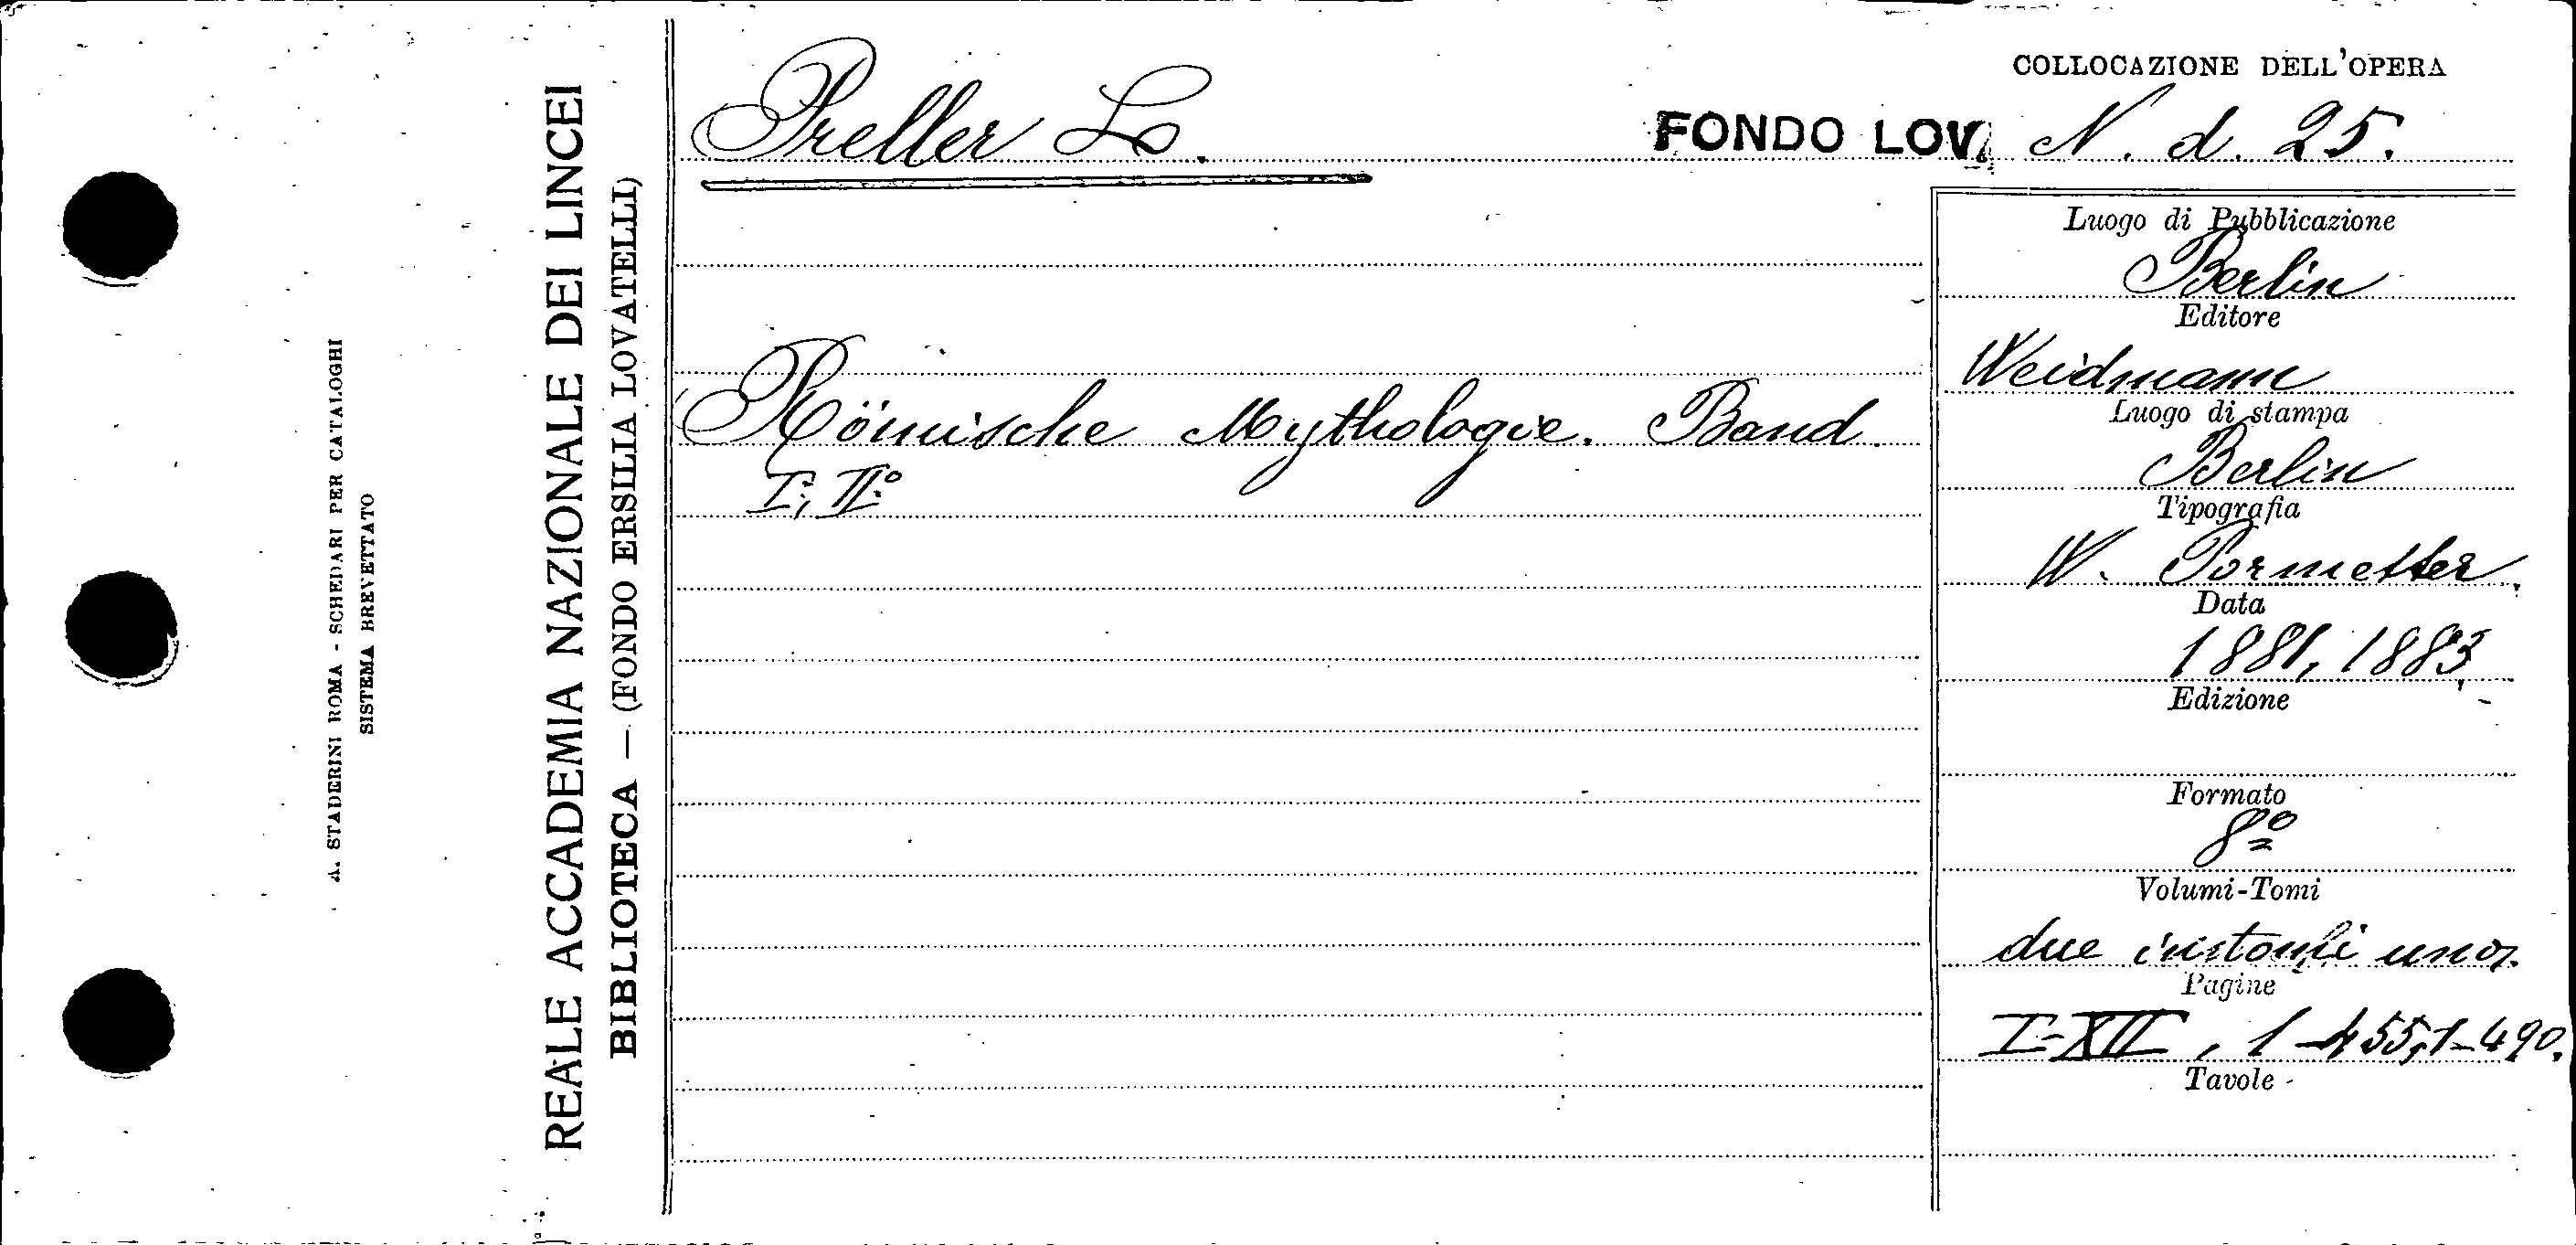 A. STADERINI ROMA - SCHEDARI PER CATALOGHI
SISTEMA BREVETTATO
REALE ACCADEMIA NAZIONALE DEI LINCEI
BIBLIOTECA — (FONDO ERSILIA LOVATELLI)
Preller L.
COLLOCAZIONE DELL'OPERA
FONDO LOV. N. d. 25.
Römische Mythologie. Band.
I:, II:º
Luogo di Pubblicazione
Berlin
Editore
Weidmann
Luogo di stampa
Berlin
Tipografia
W. Pormetter.
Data
1881, 1883,
Edizione
Formato
8º
Volumi-Tomi
due in uno
Pagine
I-XII, 1-455,1-490.
Tavole